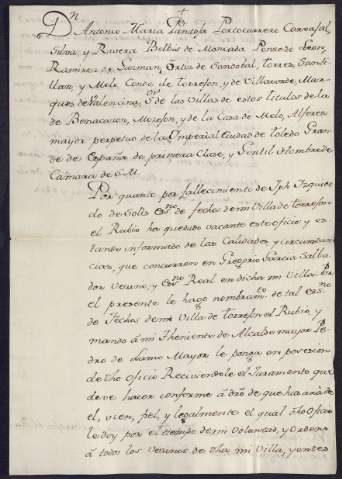 Dn. Antonio Maria Pantoja Portocarrero Carvajal
Silva, y Rivera Belbis de Moncada Ponze de Leon,
Ramirez de Guzman, Ortiz de Sandobal, Torres, Gavi-
lan, y Mele, Conde de Torrejon, y de Villaverde, Mar-
ques de Valencina, Sor. de las Villas de estos titulos de la
de Benacazon, Mozejon, y de la Casa de Mele, Alferez
mayor perpetuo de la Ymperial Ciudad de Toledo Gran-
de de España de primera Clase, y Gentil Hombre de
Camara de S.M.
Por quanto por fallecimiento de Jph Yzquier-
do de Soto Esno. de fechos de mi Villa de Torrejon
el Rubio ha quedado vacante este oficio y es-
tando informado de las Calidades y circunstan-
cias, que concurren en Gregorio Garcia Salba-
dor vecino, y Esno. Real en dicha mi Villa Por
el presente le hago nombramto. de tal Esno.
de Fechos de mi Villa de Torrejon el Rubio, y
mando á mi Theniente de Alcalde mayor Pe-
dro de Mayor le ponga en posesion
de dho oficio Reciviendole el Juramento que
deve hacer conforme á dro de que hará uso de
el, vien, fiel, y legalmente el qual dho oficio
le doy por el tiempo de mi Voluntad, y ordeno
á todos los vecinos de dha mi Villa, y entes